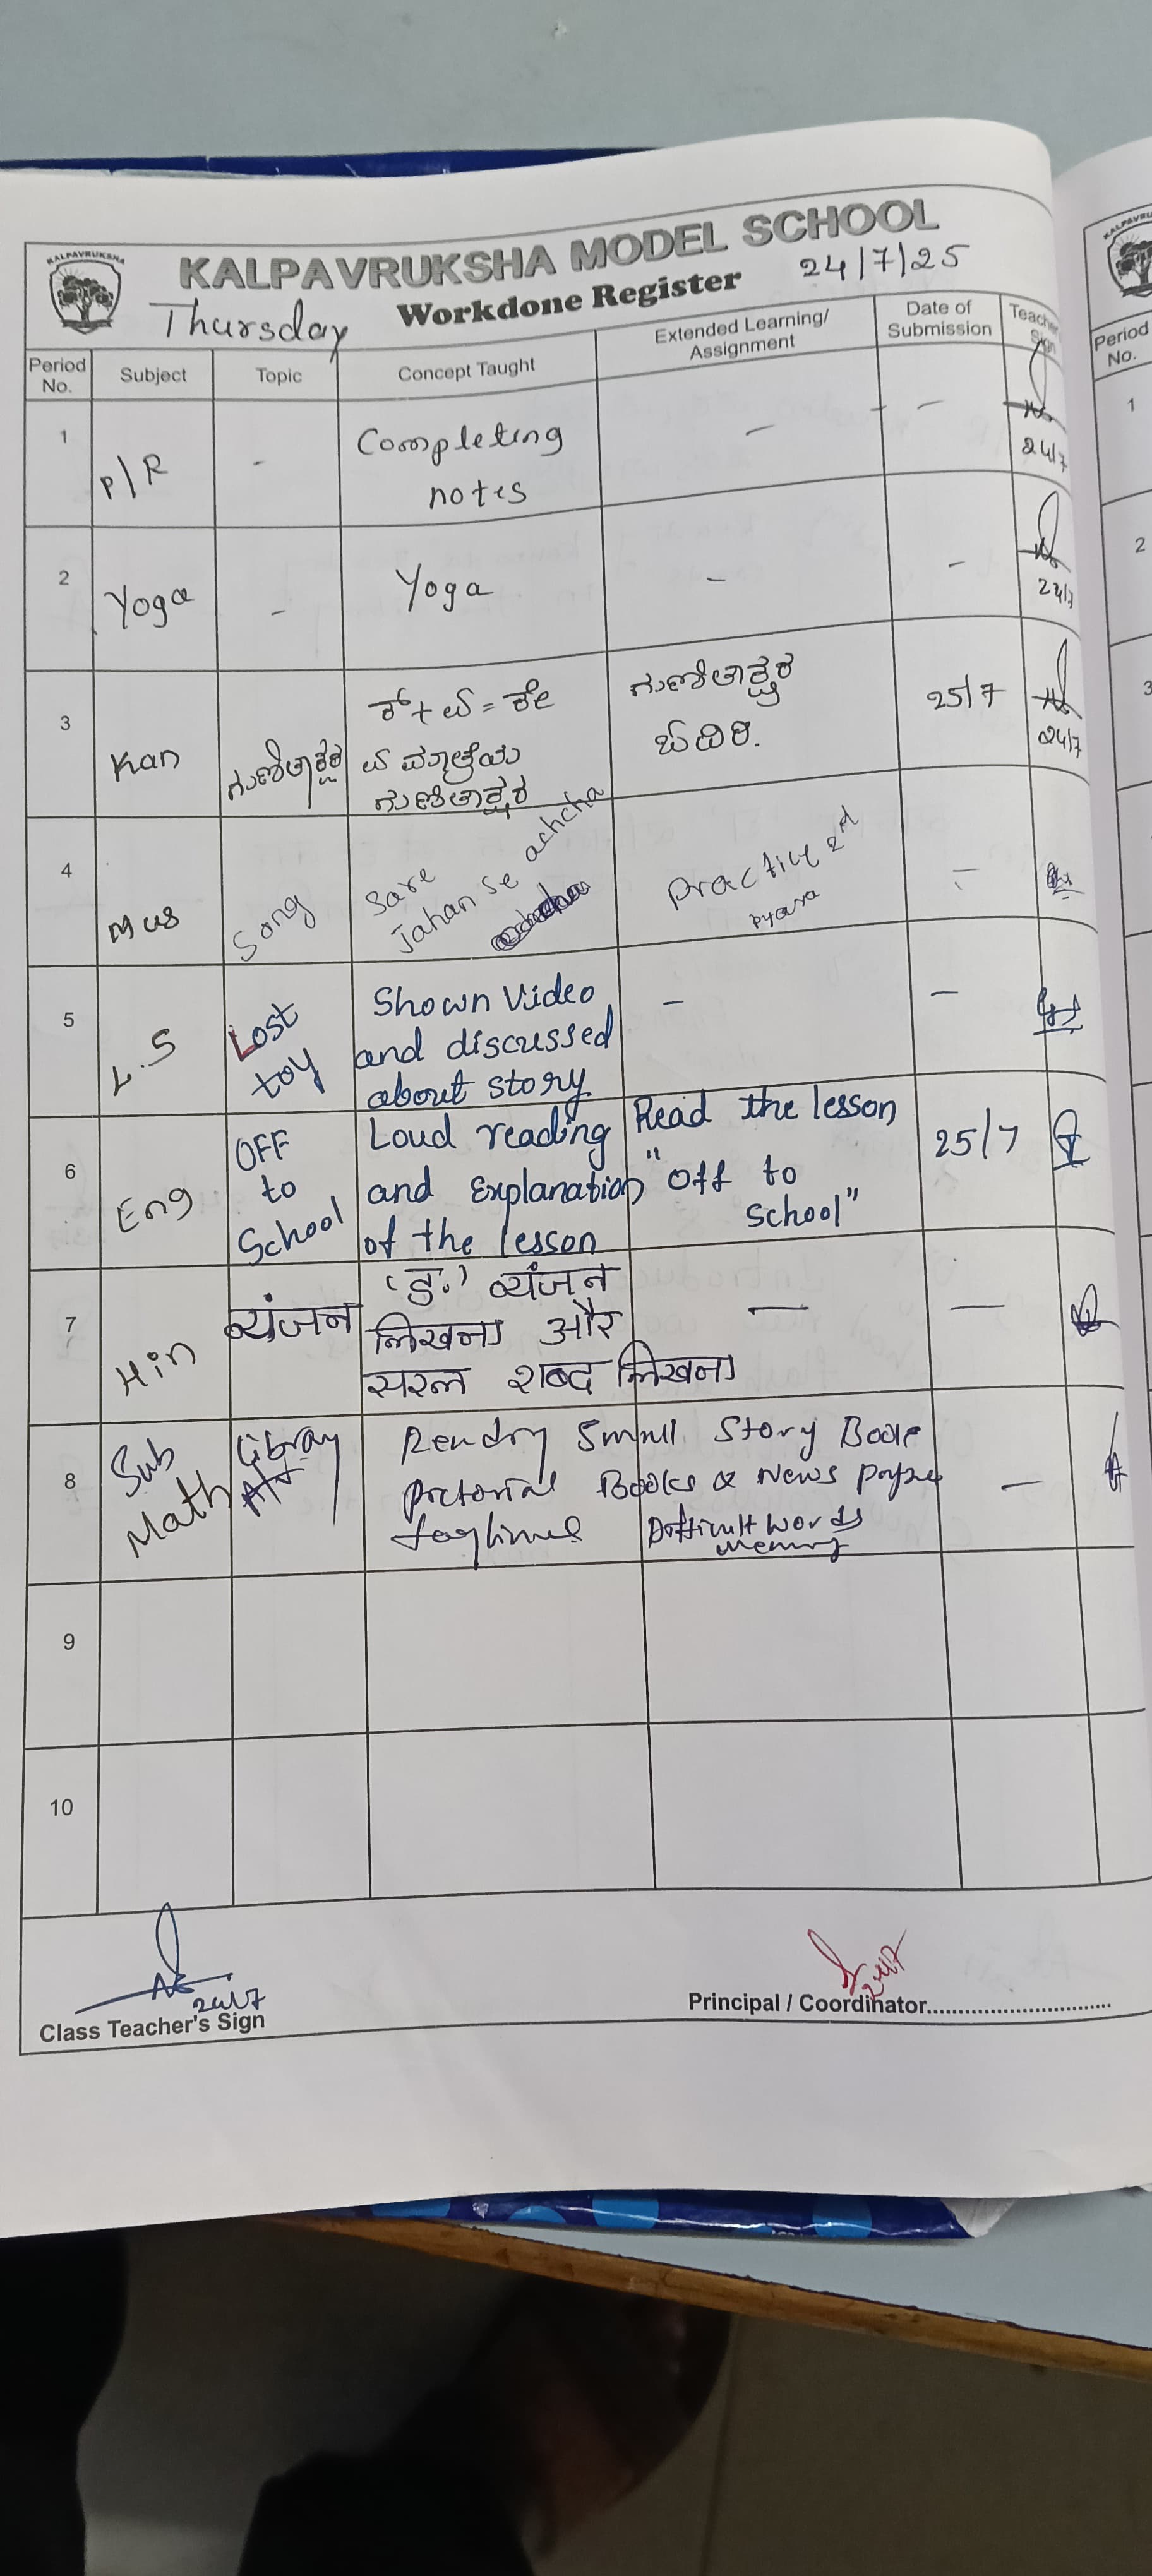 KALPAVRUKSHA
KALPAVRUKSHA MODEL SCHOOL
Workdone Register
24/7/25
Thursday
Period No. Subject Topic Concept Taught Extended Learning/ Assignment Date of Submission Teacher Sign
1 P/R - Completing notes - -
24/7
2 Yoga - Yoga - -
24/7
3 Kan ಗುಣಿತಾಕ್ಷರ ಕ್ + ಏ = ಕೇ
ಏ ಮಾತ್ರೆಯ
ಗುಣಿತಾಕ್ಷರ
ಗುಣಿತಾಕ್ಷರ
ಓದಿರಿ.
25/7
24/7
4 Mus Song Sare
Jahan se achcha
Practice 2nd
pyara
-
5 L.S Lost toy Shown Video
and discussed
about story
- -
6 Eng OFF to School Loud reading
and Explanation
of the lesson
Read the lesson
"Off to
School"
25/7
7 Hin व्यंजन 'ङ' व्यंजन
लिखना और
सरल शब्द लिखना
— —
8 Sub Math Library
Small Story Book
Pictorial Books & News paper
Difficult words
—
9
10
24/7
Class Teacher's Sign
24/7
Principal / Coordinator
Period No.
1
2
3